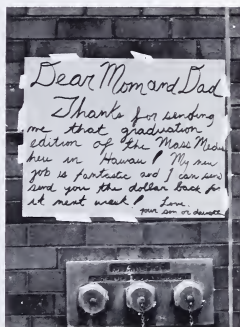 Dear Mom and Dad
Thanks for sending
me that graduation
edition of the Mass Media
here in Hawaii! My new
job is fantastic and I can
send you the dollar back for
it next week! Love,
your son or